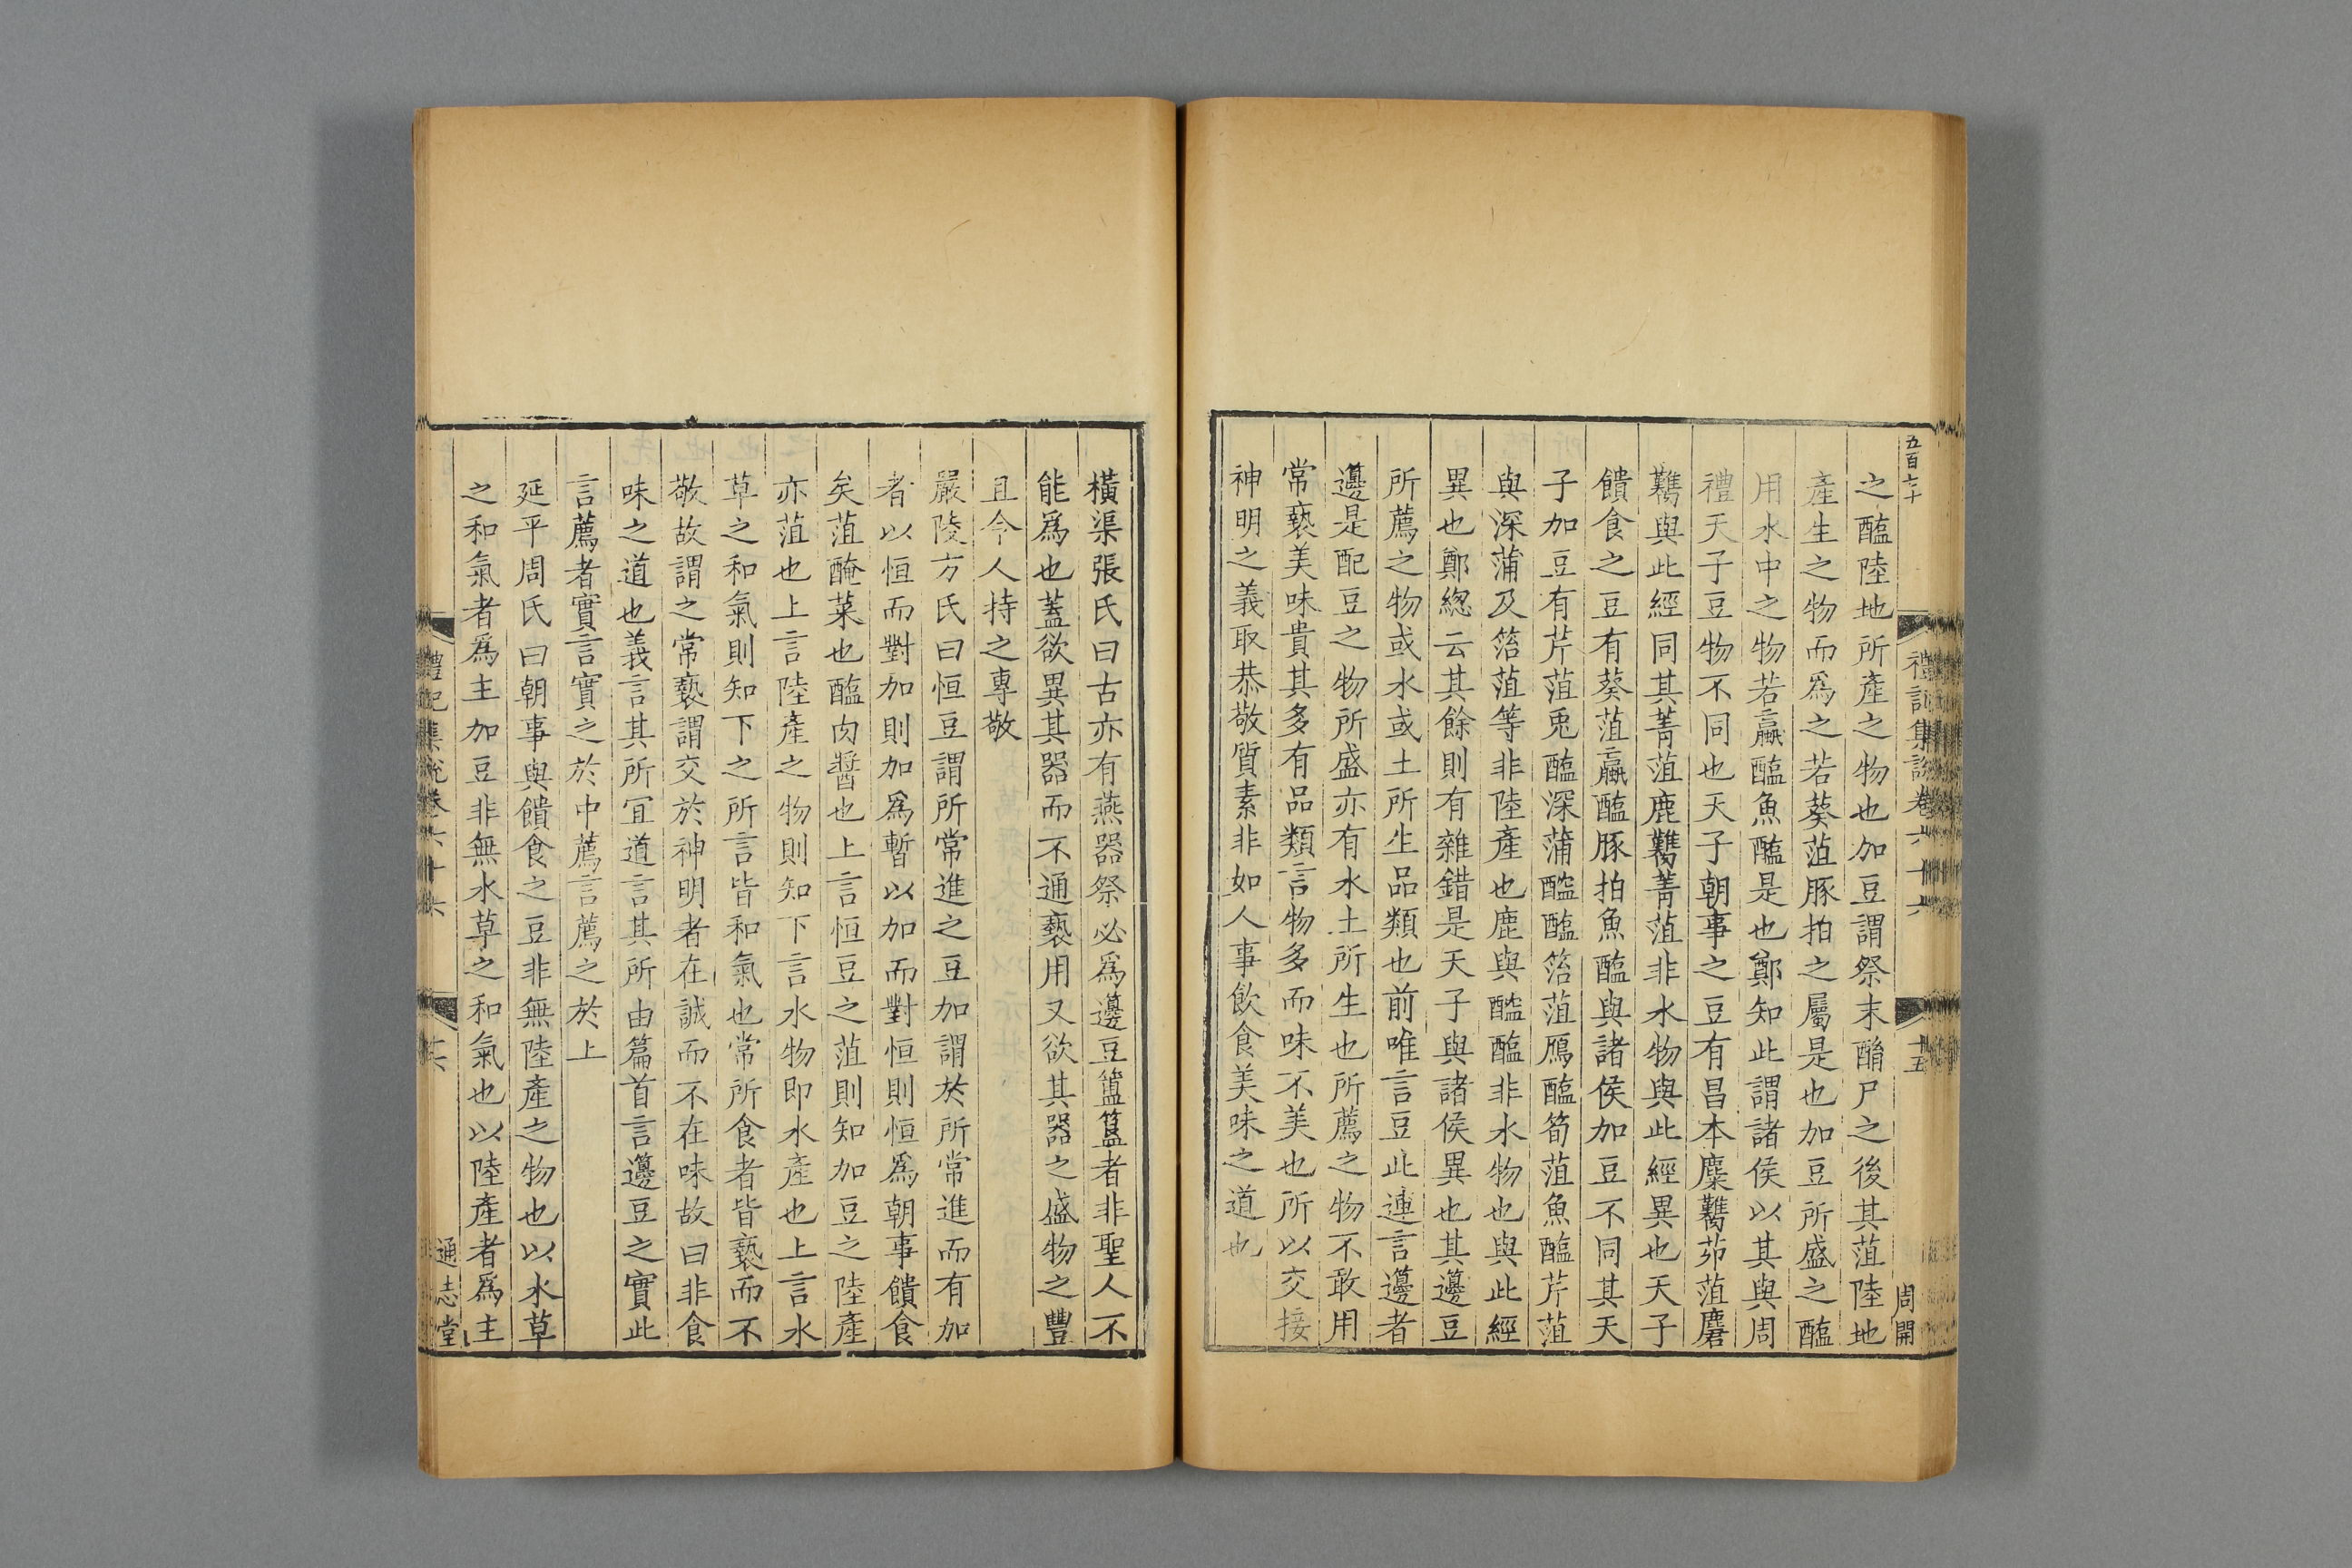 五百七十
禮記集說卷六十六
十五
周開
之醢陸地所產之物也加豆謂祭末酳尸之後其菹陸地
產生之物而為之若葵菹豚拍之屬是也加豆所盛之醢
用水中之物若蠃醢魚醢是也鄭知此謂諸侯以其與周
禮天子豆物不同也天子朝事之豆有昌本麋臡茆菹麏
臡與此經同其菁菹鹿臡菁菹非水物與此經異也天子
饋食之豆有葵菹蠃醢豚拍魚醢與諸侯加豆不同其天
子加豆有芹菹兎醢深蒲醓醢箈菹鴈醢筍菹魚醢芹菹
與深蒲及箈菹等非陸產也鹿與醓醢非水物也與此經
異也鄭緫云其餘則有雜錯是天子與諸侯異也其籩豆
所薦之物或水或土所生品類也前唯言豆此連言籩者
籩是配豆之物所盛亦有水土所生也所薦之物不敢用
常褻美味貴其多有品類言物多而味不美也所以交接
神明之義取恭敬質素非如人事飲食美味之道也
橫渠張氏曰古亦有燕器祭必為籩豆簠簋者非聖人不
能為也蓋欲異其器而不通褻用又欲其器之盛物之豐
且今人持之專敬
嚴陵方氏曰恒豆謂所常進之豆加謂於所常進而有加
者以恒而對加則加為暫以加而對恒則恒為朝事饋食
矣菹醃菜也醢肉醬也上言恒豆之菹則知加豆之陸產
亦菹也上言陸產之物則知下言水物即水產也上言水
草之和氣則知下之所言皆和氣也常所食者皆褻而不
敬故謂之常褻謂交於神明者在誠而不在味故曰非食
味之道也義言其所宜道言其所由篇首言籩豆之實此
言薦者實言實之於中薦言薦之於上
延平周氏曰朝事與饋食之豆非無陸產之物也以水草
之和氣者為主加豆非無水草之和氣也以陸產者為主
禮記集說卷六十六
通志堂